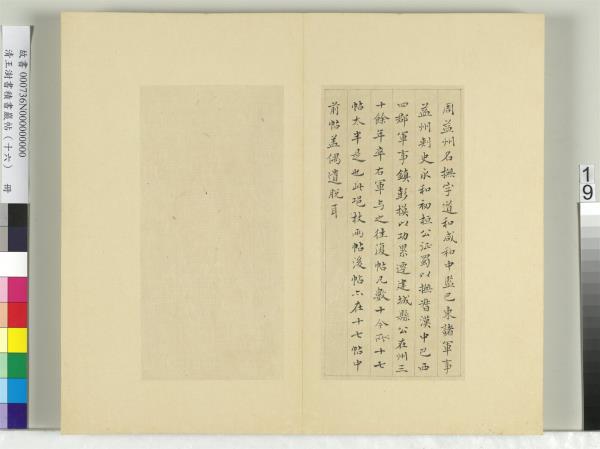 周益州名撫字道和咸和中監巴東諸軍事
益州刺史永和初桓公征蜀以撫督漢中巴西
四郡軍事鎮彭模以功累遷建城縣公在州三
十餘年卒右軍与之往復帖凡數十今所十七
帖太半是也此邛杖兩帖後帖亦在十七帖中
前帖盖偶遺脫耳
故書 000736N000000000
清王澍書積書巖帖（十六） 冊
19